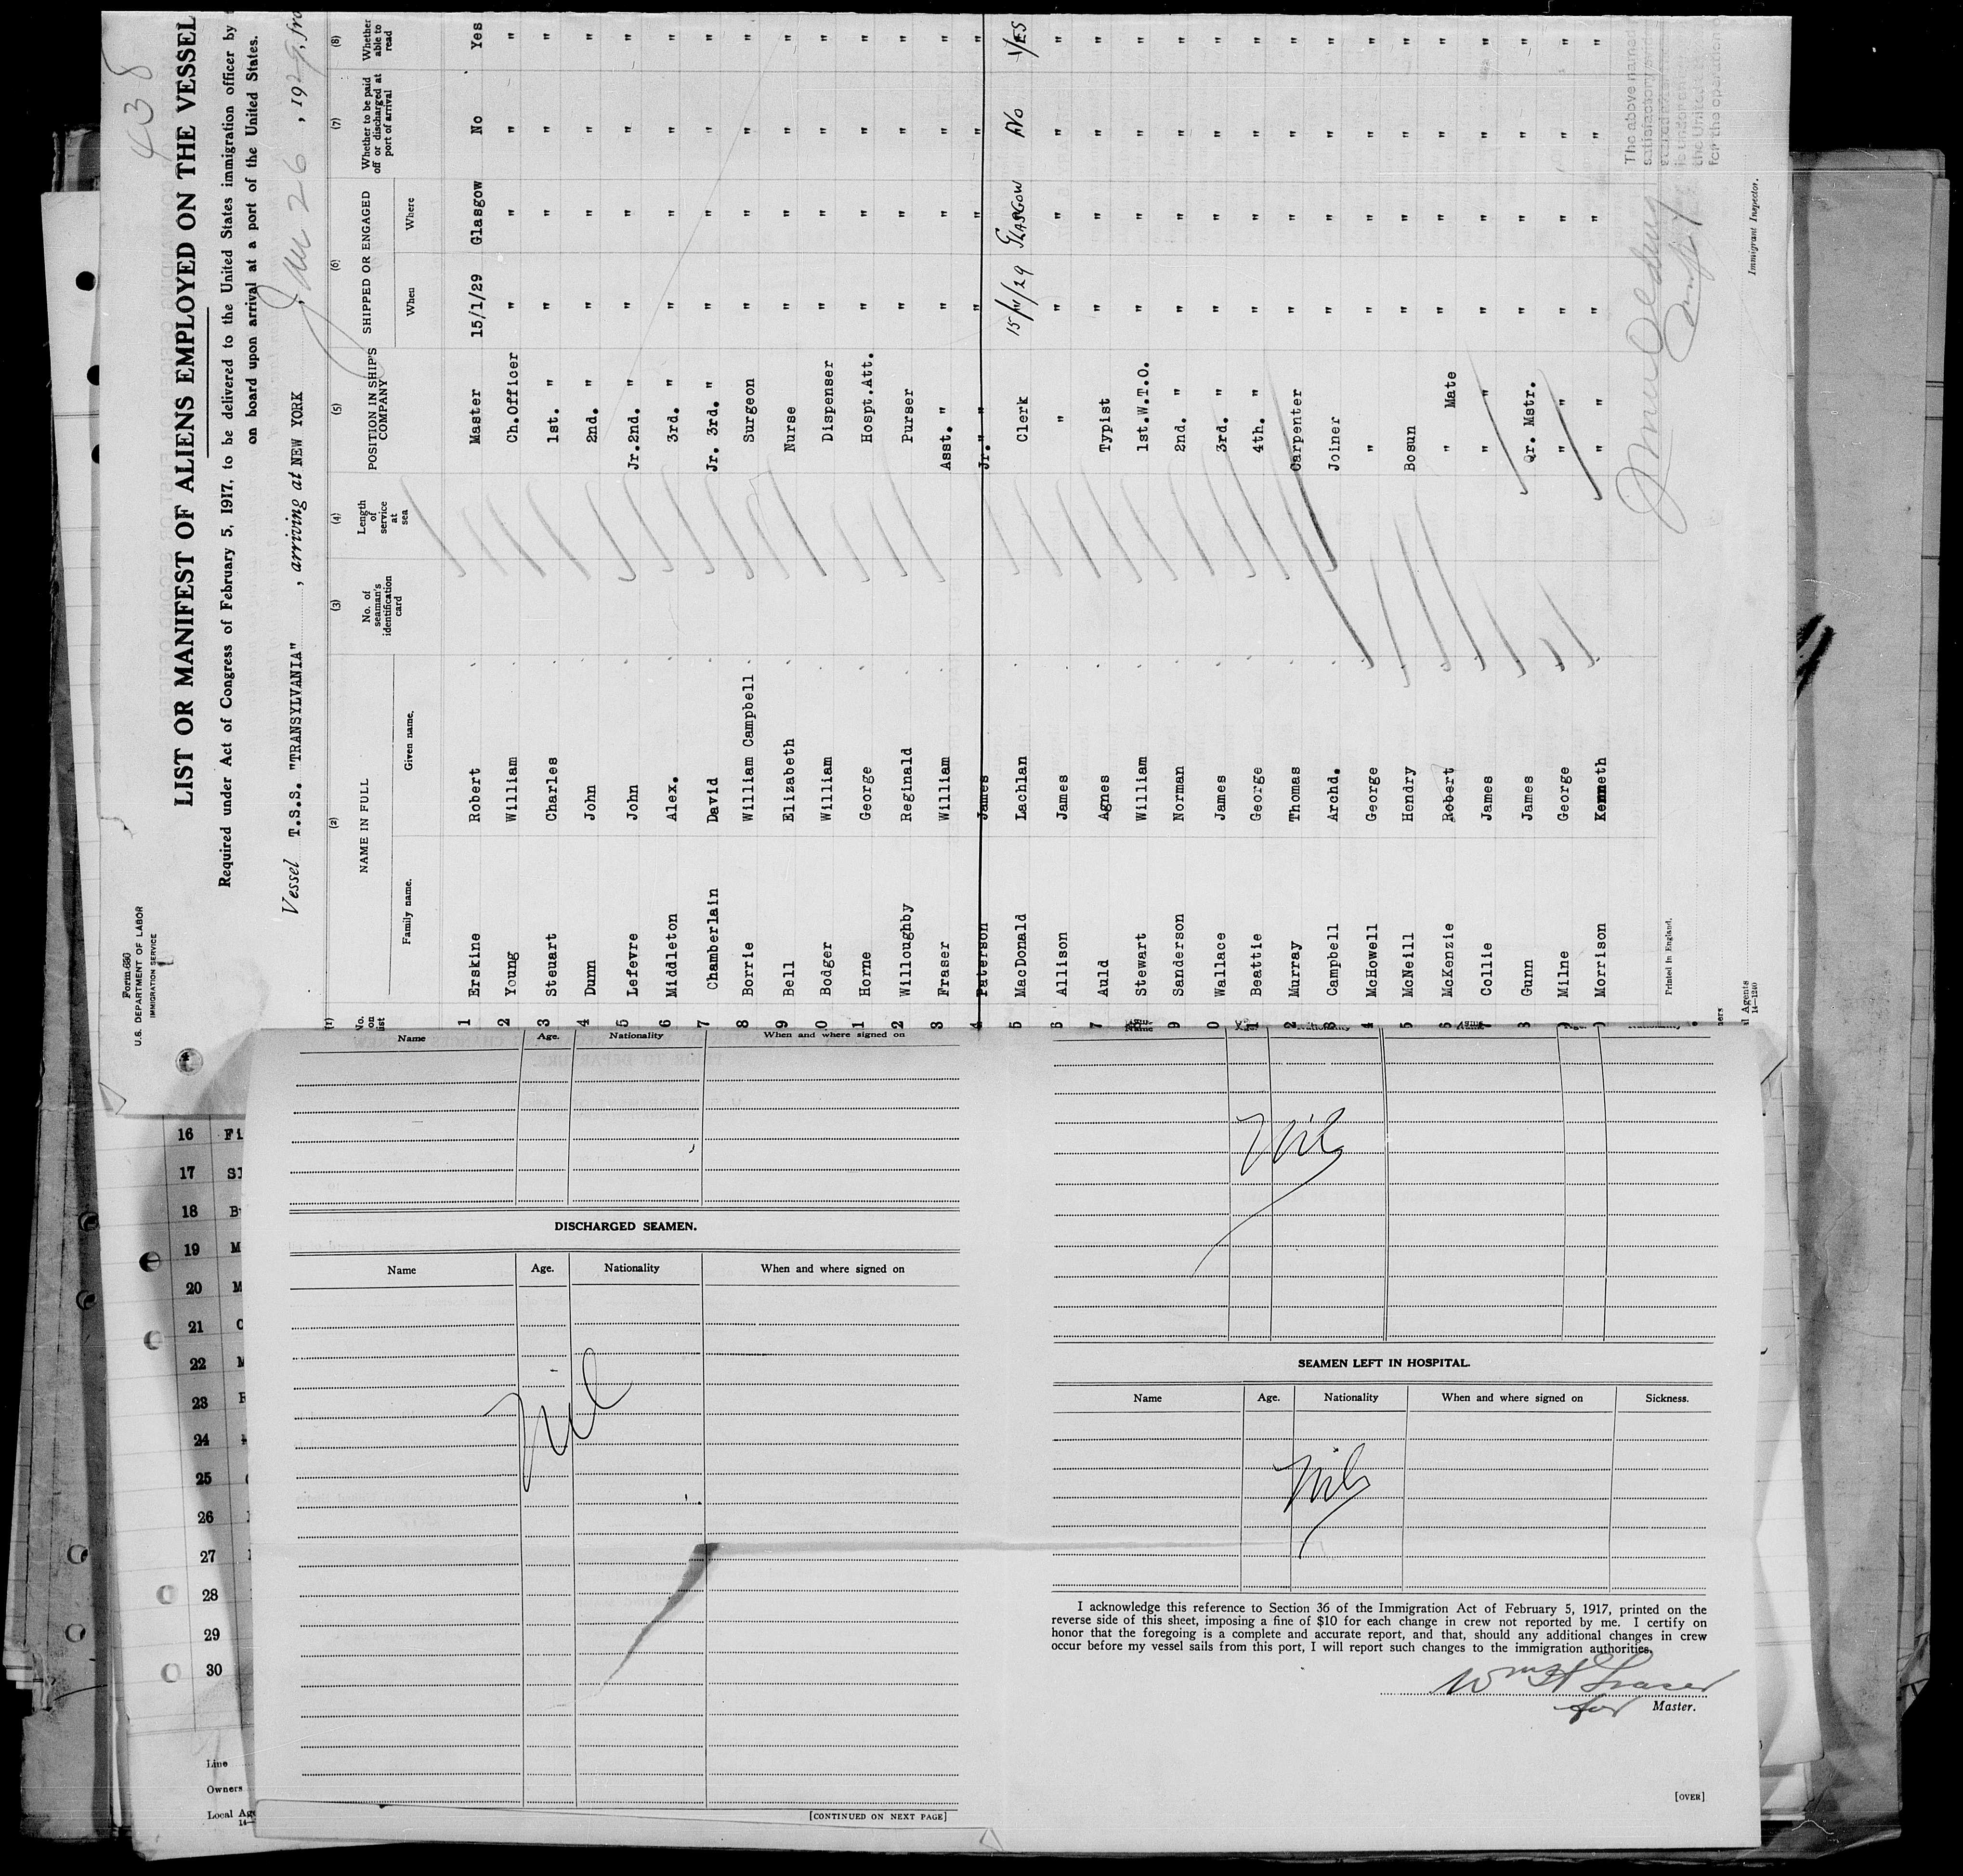 438
Form 680
U.S. DEPARTMENT OF LABOR
IMMIGRATION SERVICE
LIST OR MANIFEST OF ALIENS EMPLOYED ON THE VESSEL
Required under Act of Congress of February 5, 1917, to be delivered to the United States immigration officer by
on board upon arrival at a port of the United States.
Vessel T.S.S. "TRANSYLVANIA", arriving at NEW YORK Jan 26, 1929, fro
(1) (2) (3) (4) (5) (6) (7) (8)
No. on list NAME IN FULL Family name. Given name. No. of seaman's identification card Length of service at sea POSITION IN SHIP'S COMPANY SHIPPED OR ENGAGED When Where Whether to be paid off or discharged at port of arrival Whether able to read
1 Erskine Robert Master 15/1/29 Glasgow No Yes
2 Young William Ch.Officer " " " "
3 Steuart Charles 1st. " " " " "
4 Dunn John 2nd. " " " " "
5 Lefevre John Jr.2nd. " " " " "
6 Middleton Alex. 3rd. " " " " "
7 Chamberlain David Jr. 3rd. " " " " "
8 Borrie William Campbell Surgeon " " " "
9 Bell Elizabeth Nurse " " " "
0 Bodger William Dispenser " " " "
1 Horne George Hospt.Att. " " " "
2 Willoughby Reginald Purser " " " "
3 Fraser William Asst. " " " " "
4 Paterson James Jr. " " " " "
5 MacDonald Lachlan Clerk 15/1/29 GLASGOW No YES
6 Allison James " " " " "
7 Auld Agnes Typist " " " "
8 Stewart William 1st.W.T.O. " " " "
9 Sanderson Norman 2nd. " " " " "
0 Wallace James 3rd. " " " " "
1 Beattie George 4th. " " " " "
2 Murray Thomas Carpenter " " " "
3 Campbell Archd. Joiner " " " "
4 McHowell George " " " " "
5 McNeill Hendry Bosun " " " "
6 McKenzie Robert " Mate " " " "
7 Collie James " " " " " "
8 Gunn James Qr. Mstr. " " " "
9 Milne George " " " " " "
0 Morrison Kenneth " " " " " "
The above named
the United
for the operation o
Immigrant Inspector.
Printed in England.
ners
l Agents
14—1240
16 Fi
17 Sl
18 B
19 M
20 M
21 C
22 M
23
24
25
26
27
28
29
30
Line
Owners
Local Age
14—
Name Age. Nationality When and where signed on
DISCHARGED SEAMEN.
Name Age. Nationality When and where signed on
Nil
[CONTINUED ON NEXT PAGE]
Nil
SEAMEN LEFT IN HOSPITAL.
Name Age. Nationality When and where signed on Sickness.
Nil
I acknowledge this reference to Section 36 of the Immigration Act of February 5, 1917, printed on the
reverse side of this sheet, imposing a fine of $10 for each change in crew not reported by me. I certify on
honor that the foregoing is a complete and accurate report, and that, should any additional changes in crew
occur before my vessel sails from this port, I will report such changes to the immigration authorities.
Wm H Fraser
for Master.
[OVER]